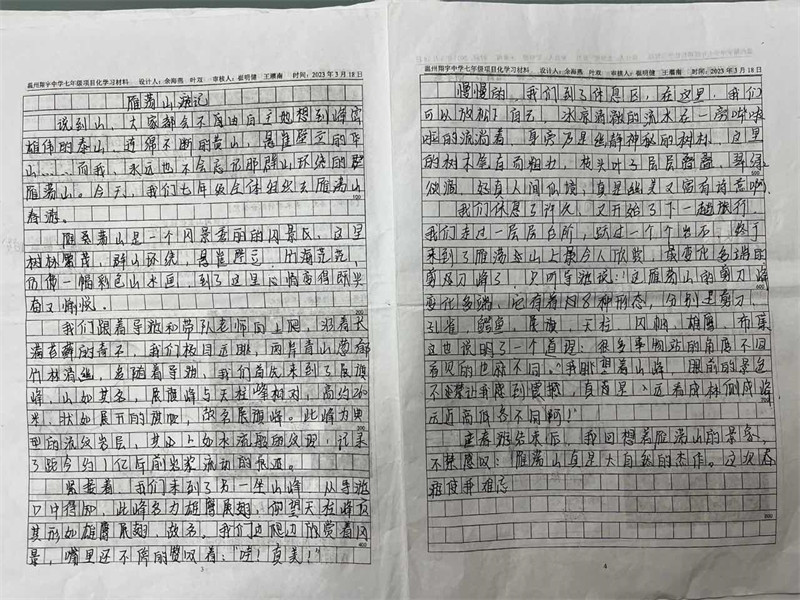 温州翔宇中学七年级项目化学习材料 设计人：余海燕 叶双 审核人：崔明健 王雁南 时间：2023年3月18日
雁荡山游记
说到山，大家都会不由自主地想到峰峦
雄伟的泰山，连绵不断的黄山，悬崖壁立的华
山……而我，永远也不会忘记那群山环绕的
雁荡山。今天，我们七年级全体组织去雁荡山
春游。
100
雁荡山是一个风景秀丽的风景区，这里
树林繁茂，群山环绕，悬崖壁立，竹海茫茫，
仿佛一幅彩色山水画，到了这里心情变得既兴
200
奋又愉悦。
我们跟着导游和带队老师向上爬，沿着长
满苔藓的奇石，我们极目远眺，两岸青山葱郁
竹林清幽，跟随着导游，我们首先来到了展旗
峰，山如其名，展旗峰与天柱峰相对，高约260
米，状如展开的旗帜，故名展旗峰。此峰为典
300
型的流纹岩层，其上如水流般的纹理，记录
了距今约1亿年前岩浆流动的痕迹。
紧接着，我们来到了另一坐山峰，从导游
口中得知，此峰名为雄鹰展翅，仰望天柱峰顶
其形如雄鹰展翅，故名。我们边爬边欣赏着风
400
景，嘴里还不停的赞叹着：“哇！真美！”
3
温州翔宇中学七年级项目化学习材料 设计人：余海燕 叶双 审核人：崔明健 王雁南 时间：2023年3月18日
慢慢的，我们到了休息区，在这里，我们
可以放松了自己，冰凉清澈的流水在一旁哗啦
啦的流淌着，身旁乃是幽静神秘的树林，这里
的树木笔直而粗力，枝头叶子层层叠叠，翠绿
500
欲滴，好真人间仙境，真是幽美又富有诗意啊。
我们休息了许久，又开始了下一趟旅行。
我们走过一层层台阶，跃过一个个岩石，终于
来到了雁荡山上最令人欣赏，最变化多端的
600
剪刀峰了，只听导游说：“这雁荡山的剪刀峰
变化多端，它有着约8种形态，分别是剪刀，
鳄鱼，展旗，天柱，风帆，雄鹰，
这也说明了一个道理：很多事物站的角度不同
看见的也就不同。”我眺望着山峰，眼前的景色
700
不禁让我感到震撼，真是，远看成林侧成峰
远近高低各不同啊！”
春游结束后，我回想着雁荡山的景象，
不禁感叹：雁荡山真是大自然的杰作。这次春
游使我难忘
800
4